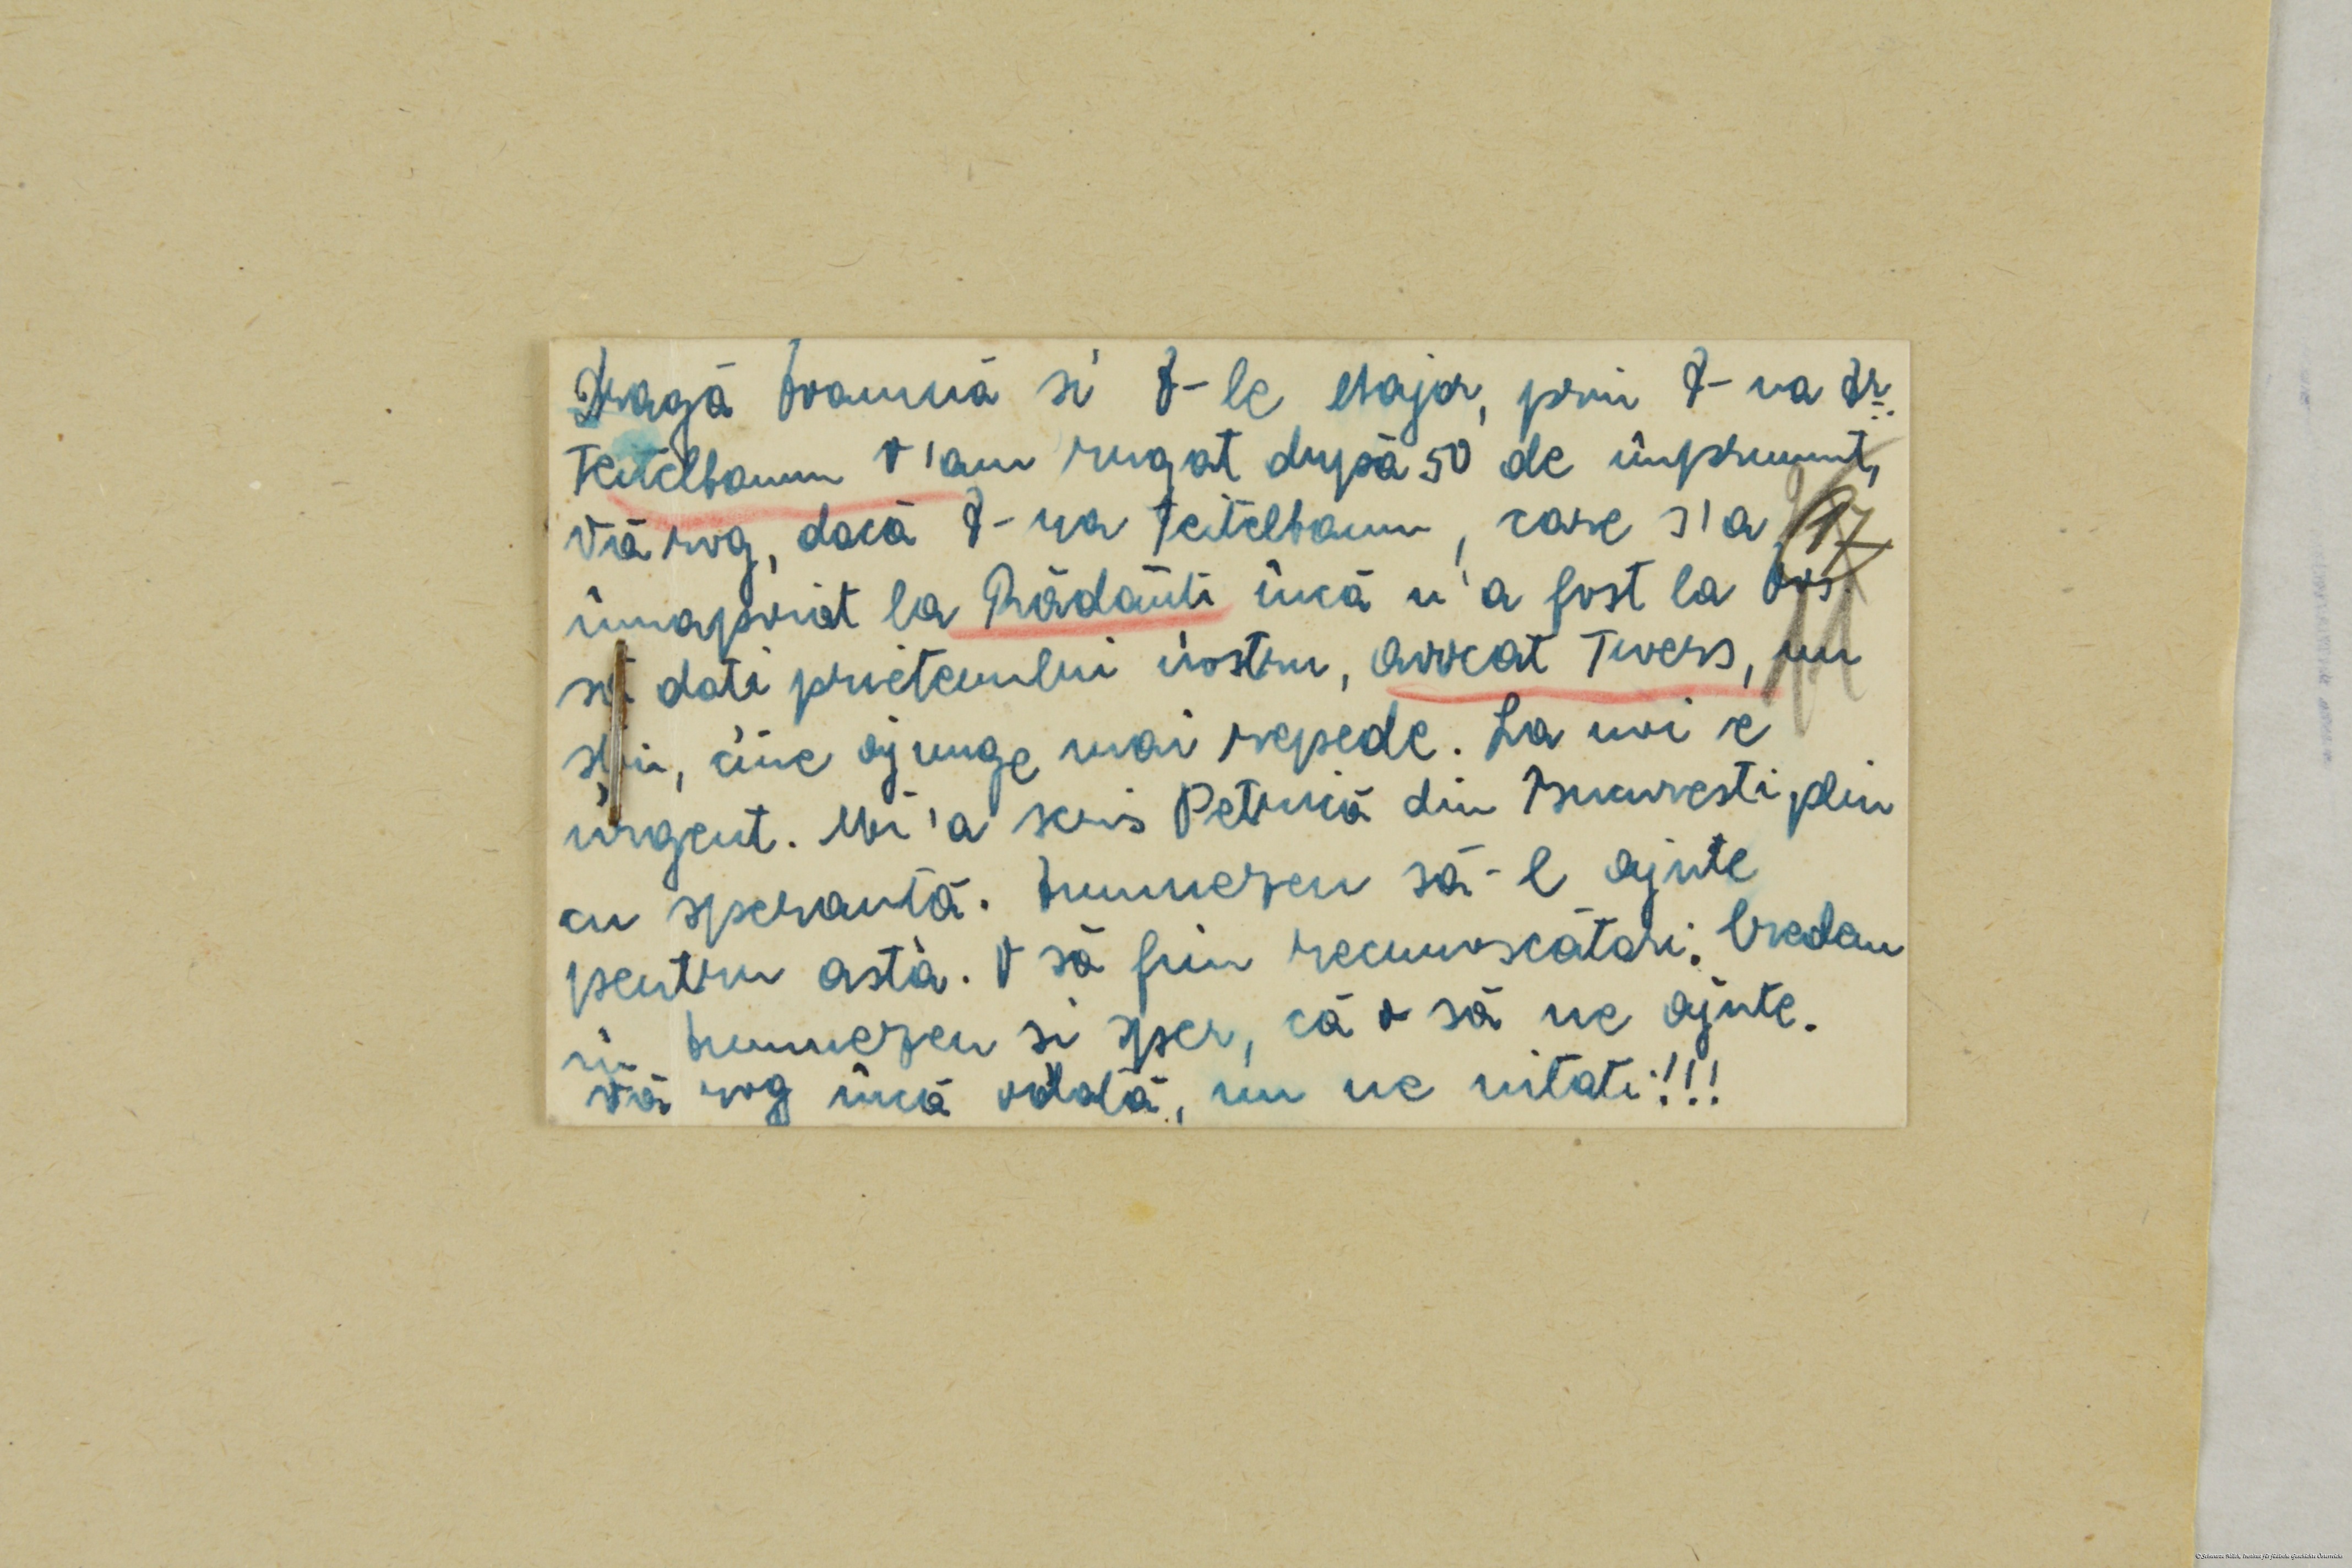 Dragă Doamnă si D-le Major, prin D-na Dr.
Teitelbaum v'am rugat după 50 de împrumut,
Vă rog, dacă D-na Teitelbaum, care s'a
înnapoiat la Rădăuti încă n'a fost la Dvs.
să dati prietenului nostru, avocat Twers, nu
stiu, cine ajunge mai repede. La noi e
urgent. Mi'a scris Petrică din Bucuresti plin
cu sperantă. Dumnezeu să-l ajute
pentru asta. O să fim recunoscători. Credem
în Dumnezeu si sper, că o să ne ajute.
Vă rog încă odată, nu ne uitati!!!